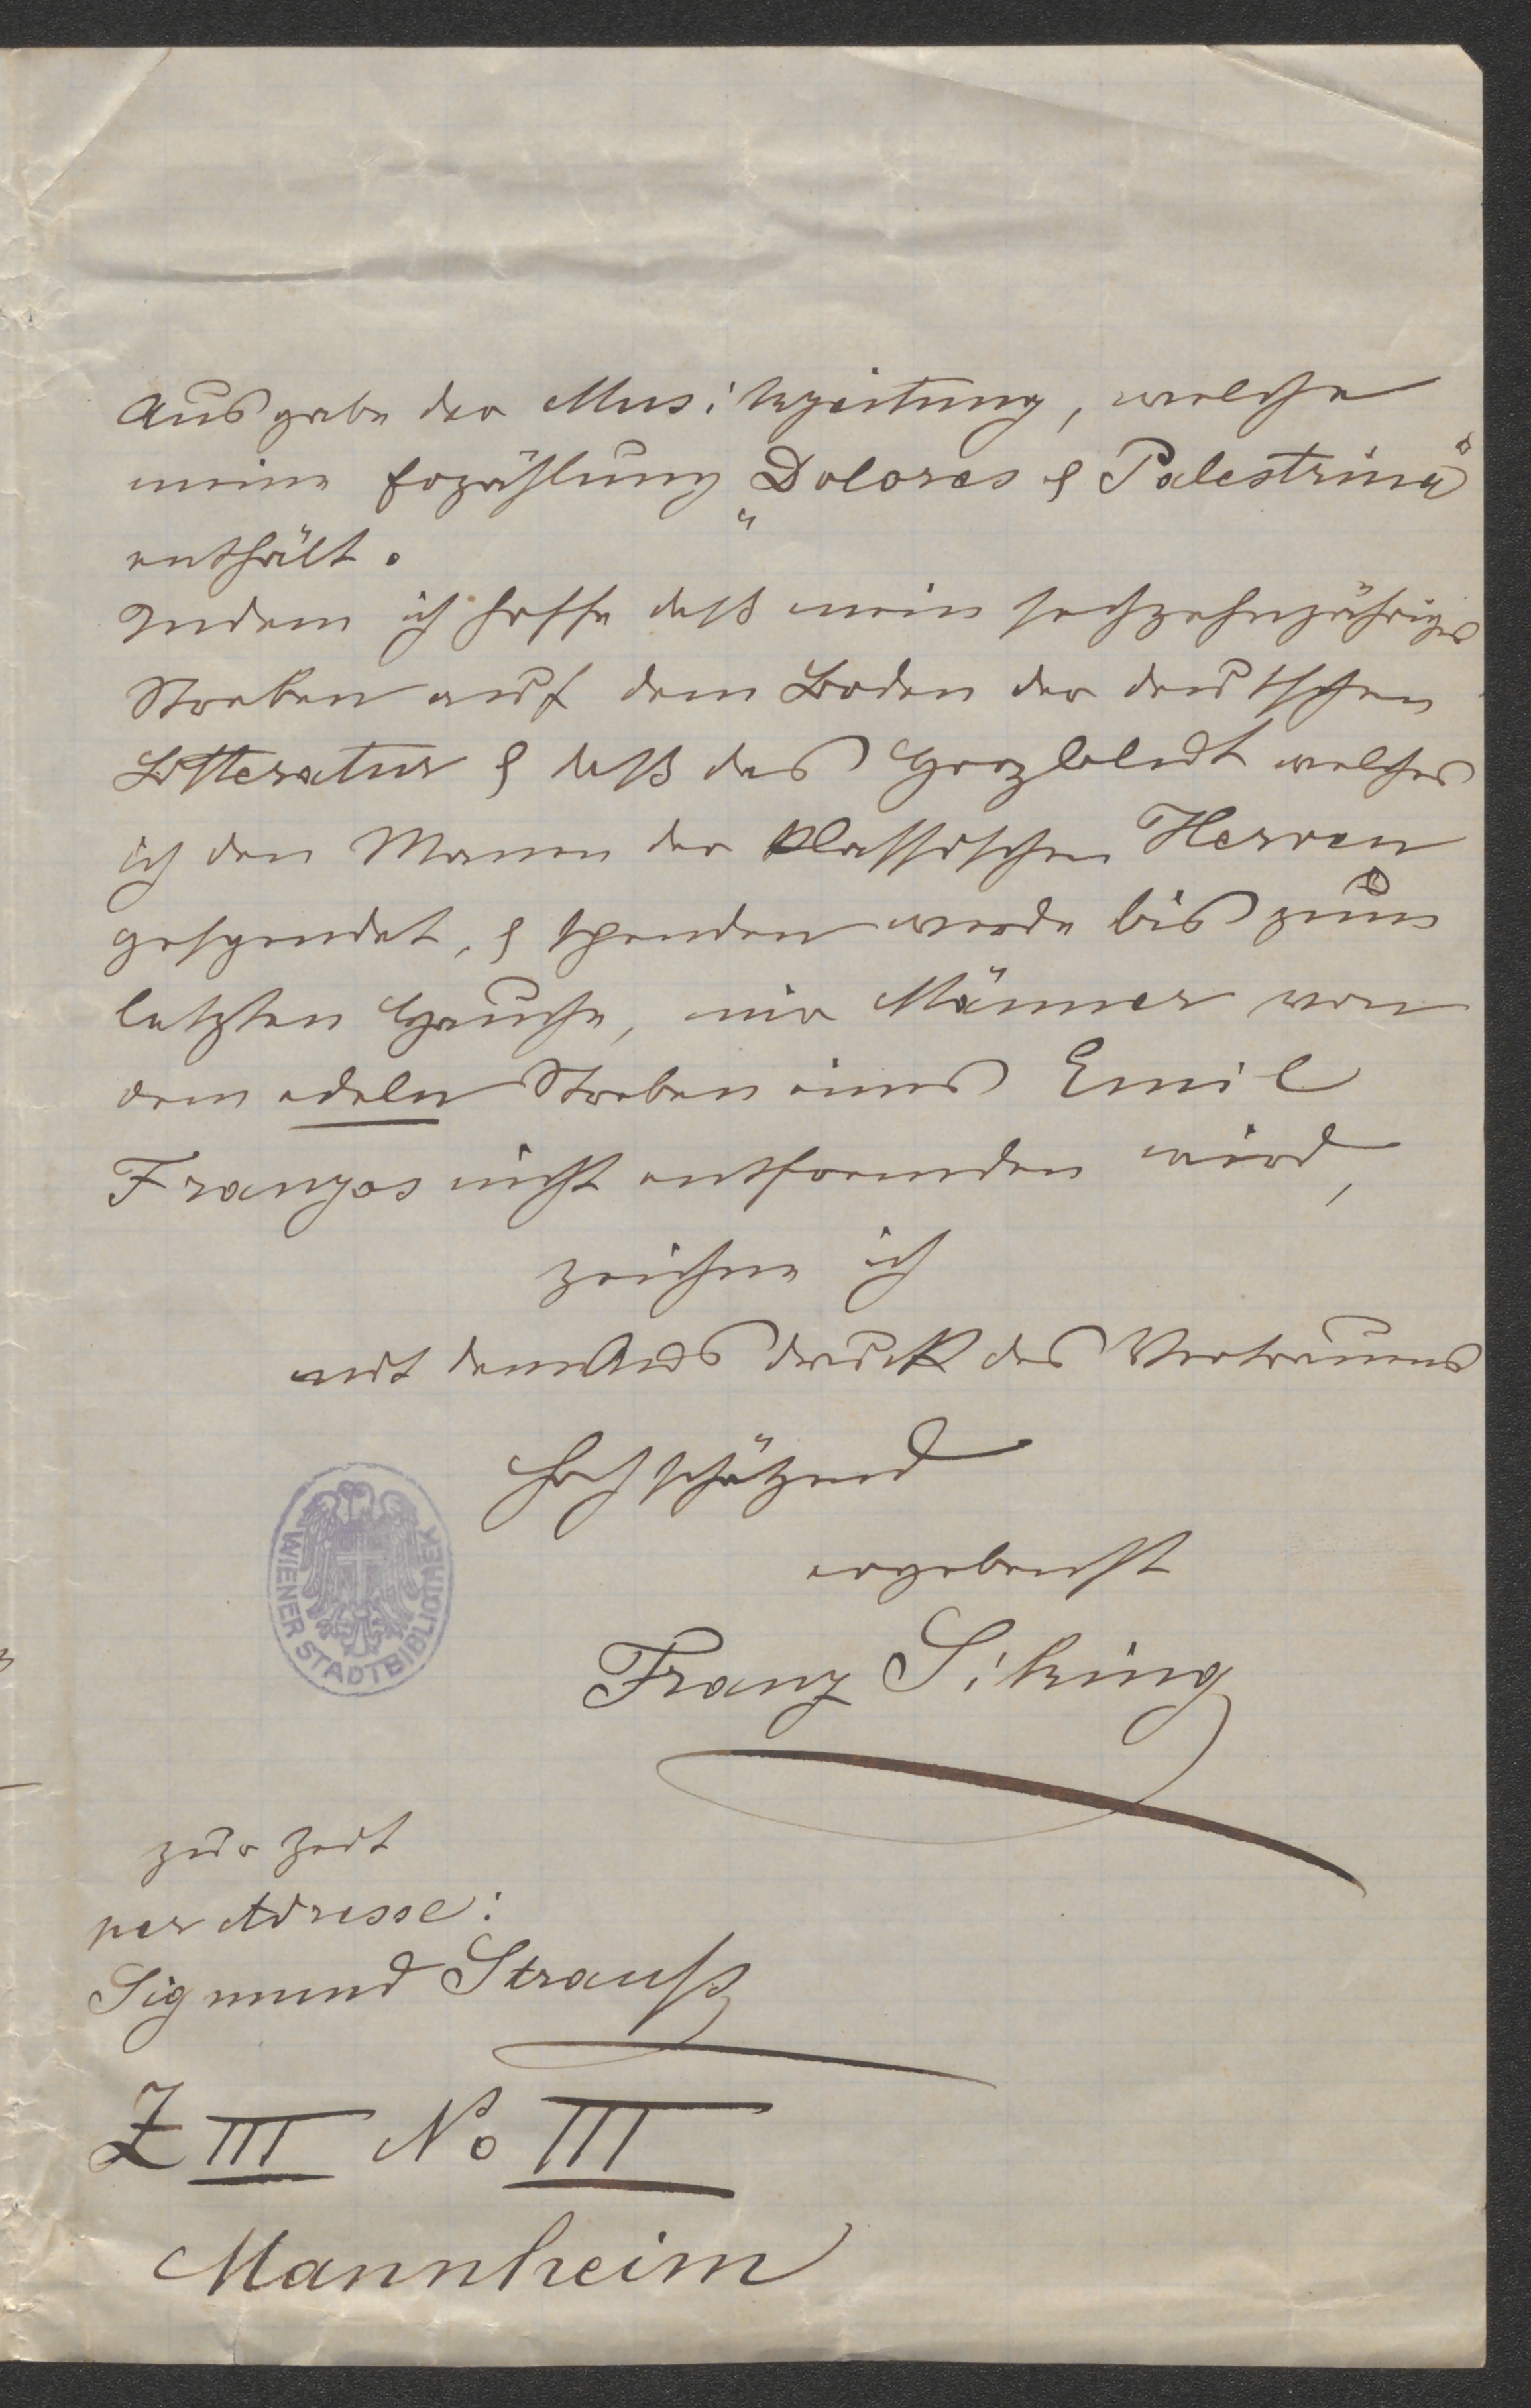 Ausgabe der Musikzeitung, welche
meine Erzählung „Dolores & Palestrina“
enthält.
Indem ich hoffe daß mein sechzehnjähriges
Streben auf dem Boden der deutschen
Litteratur & daß das Herzblut welches
ich den Manen der klassischen Heroen
gespendet, & spenden werde bis zum
letzten Hauche, mir Männer von
dem edeln Streben eines Emil
Franzos nicht entfremden wird,
zeichne ich
mit dem Ausdruck des Vertrauens
hochschätzend
ergebenst
Franz Siking
WIENER STADTBIBLIOTHEK
zur Zeit
per Adresse:
Sigmund Strauß
Z III No III
Mannheim